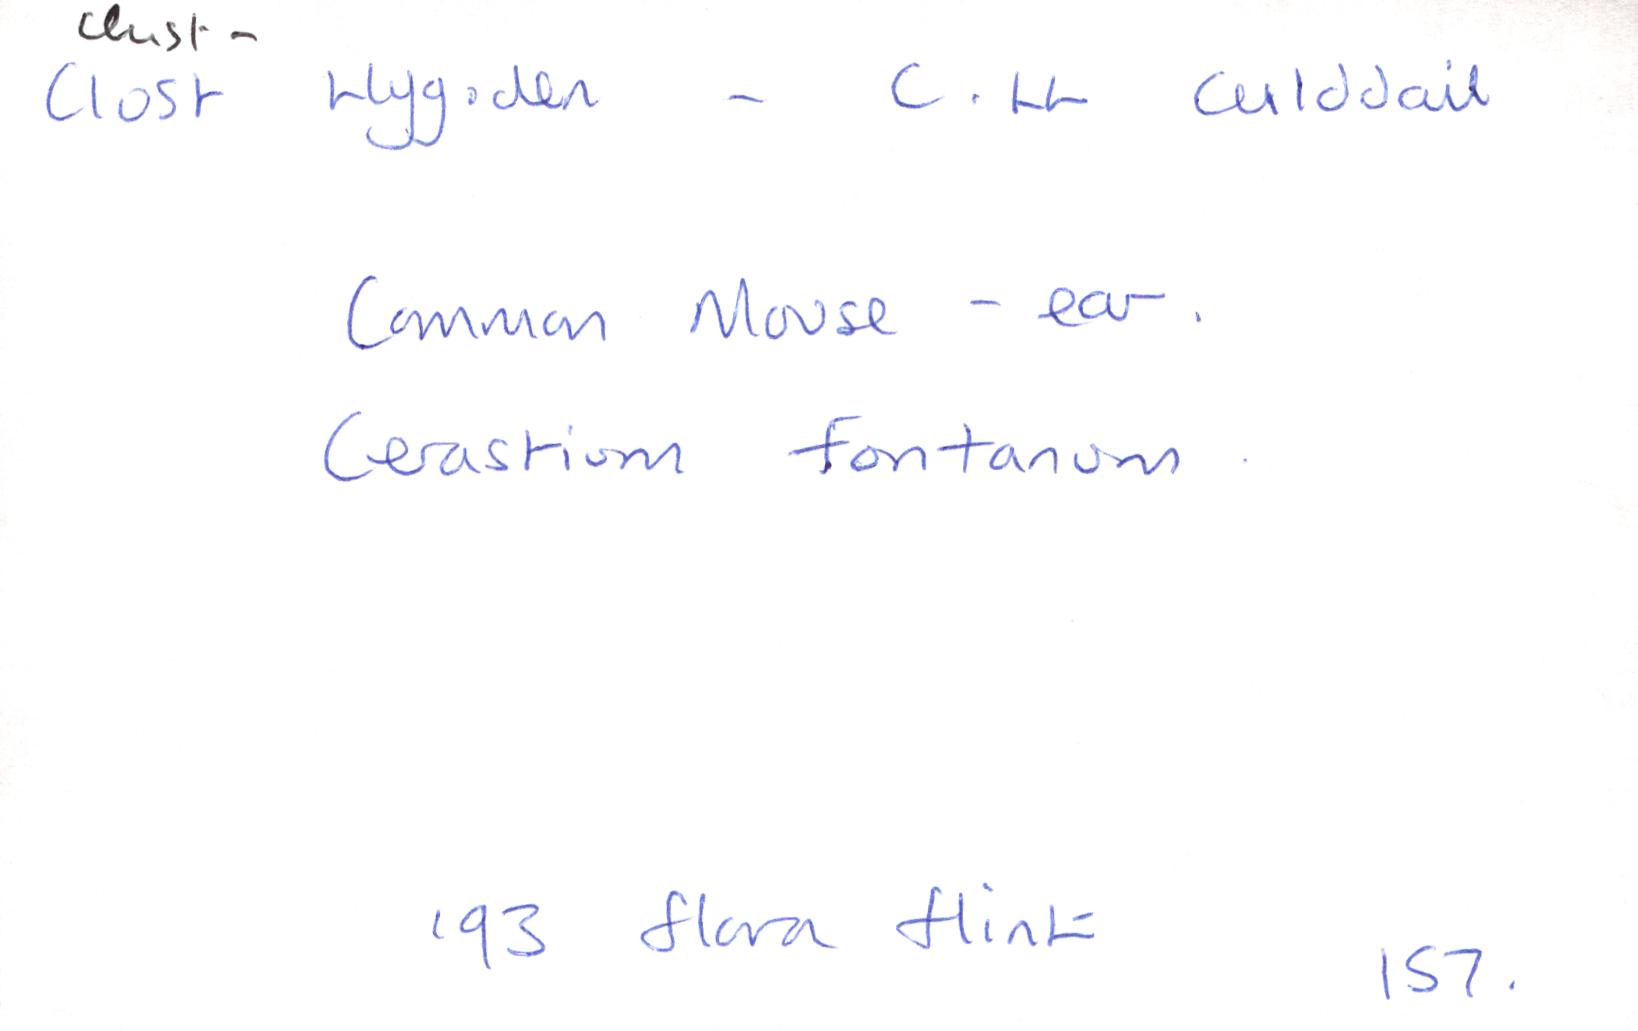 clust -
Clost Llygoden - C. LL Culddail
Common Mouse - ear.
Cerastium fontanum.
'93 flora flint
157.